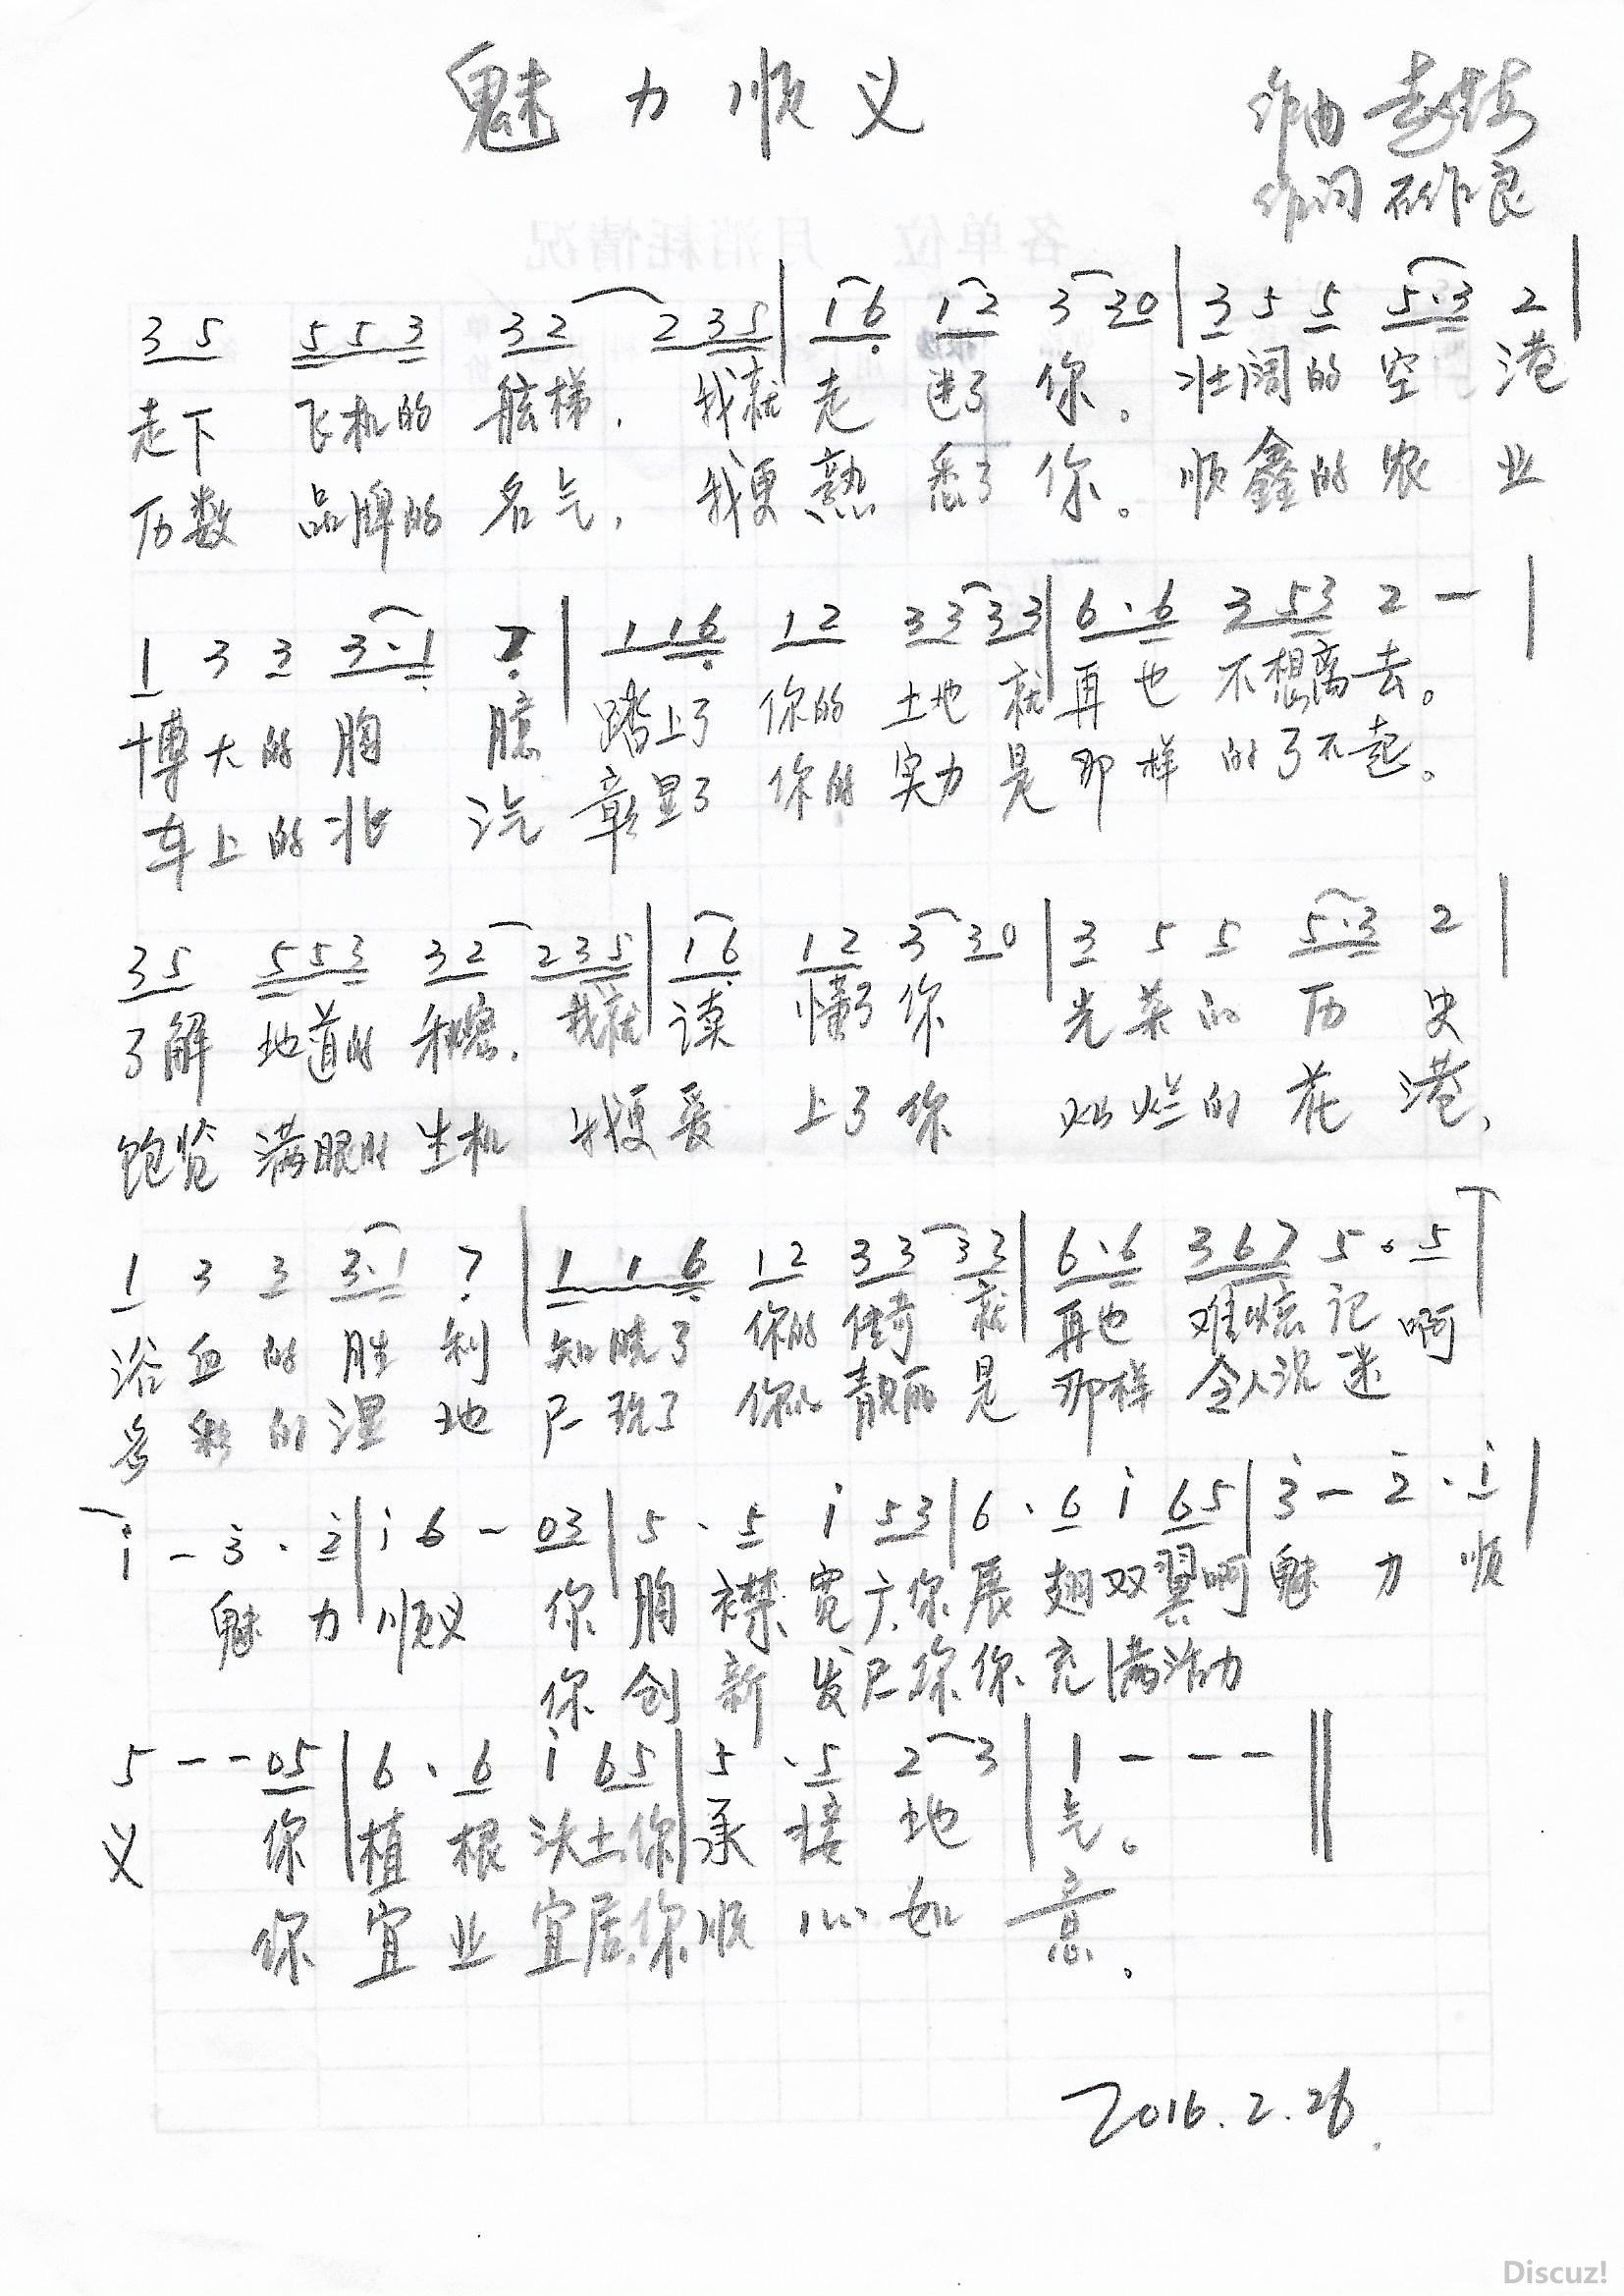 魅力顺义
作曲
作词 石作良
3 5 5 5 3 3 2 2 3 5 | 1 6 1 2 3 3 0 | 3 5 5 5·3 2 |
走下 飞机的 舷梯, 我就走进了你。壮阔的空港
历数 品牌的 名气, 我更熟悉了你。顺鑫的农业
1 3 3 3·1 7 | 1 1 6 1 2 3 3 3 3 | 6·6 3 5 3 2 - |
博大的胸臆 踏上了 你的 土地 就再也 不想离去。
车上的北汽 彰显了 你的 实力 是那样 的了不起。
3 5 5 5 3 3 2 2 3 5 | 1 6 1 2 3 3 0 | 3 5 5 5·3 2 |
了解 地道的 秘密, 我就读 懂了你 光荣的历史
饱览 满眼的 生机 我更爱 上了你 灿烂的花港,
1 3 3 3·1 7 | 1 1 6 1 2 3 3 3 3 | 6·6 3 6 7 5·5 |
浴血的胜利 知晓了 你的 传奇 就再也 难忘记 啊
多彩的湿地 展现了 你的 靓丽 是 那样 令人沉迷
i - 3·2 | i 6 - 0 3 | 5·5 i 5 3 | 6·6 i 6 5 | 3 - 2·i |
魅力顺义 你胸襟宽广,你展翅双翼啊魅力顺
你创新发展你你充满活力
5 - - 0 5 | 6·6 i 6 5 | 5·5 2 3 | 1 - - - ‖
义 你植根沃土,你承接地气。
你宜业宜居,你顺心如意。
2016.2.26
Discuz!